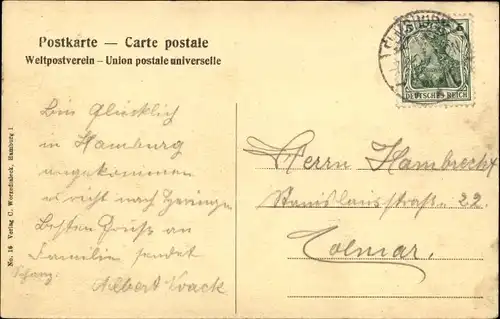 Postkarte — Carte postale
Weltpostverein – Union postale universelle
5
DEUTSCHES REICH
Bin Glücklich
in Hamburg
angekommen
es nicht nach
Besten Gruße an
Familie sendet
Albert
Herrn Hambrecht
Stanislausstraße 22.
Colmar.
No. 16 Verlag C. Worzedialeck, Hamburg 1